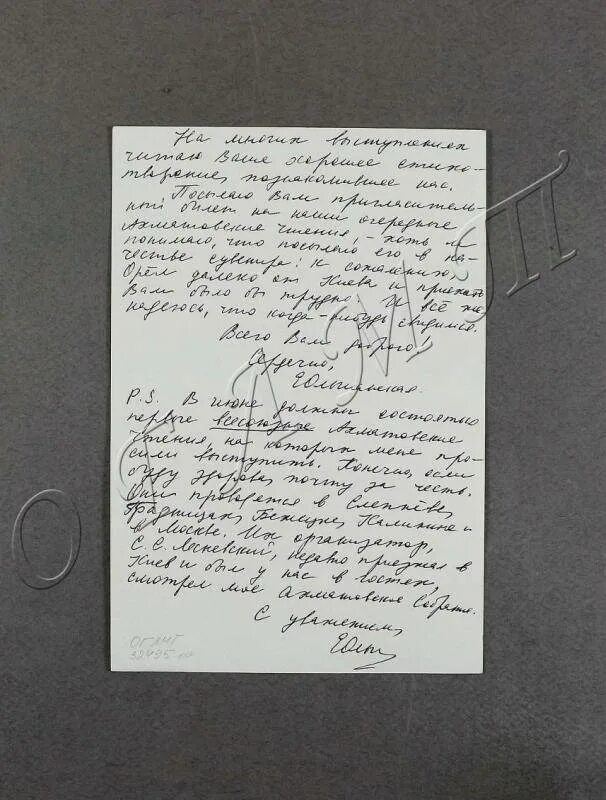 На многих выступлениях
читаю Ваше хорошее стихо-
творение, познакомившее нас.
Посылаю Вам пригласитель-
ный билет на наши очередные
Ахматовские чтения, - хоть и
понимаю, что посылаю его в ка-
честве сувенира: к сожалению,
Орёл далеко от Киева и приехать
Вам было бы трудно. И всё же
надеюсь, что когда-нибудь свидимся.
Всего Вам доброго!
Сердечно,
ЕОльшанская.
P.S. В июне должны состояться
первые всесоюзные Ахматовские
чтения, на которых меня про-
сили выступить. Конечно, если
буду здорова, почту за честь.
Они проводятся в Слепнёве,
Градницах, Бежецке, Калинине и
в Москве. Их организатор,
С.С. Лесневский, недавно приезжал в
Киев и был у нас в гостях,
смотрел моё Ахматовское Собрание.
С уважением,
ЕОльш
ОГЛМТ